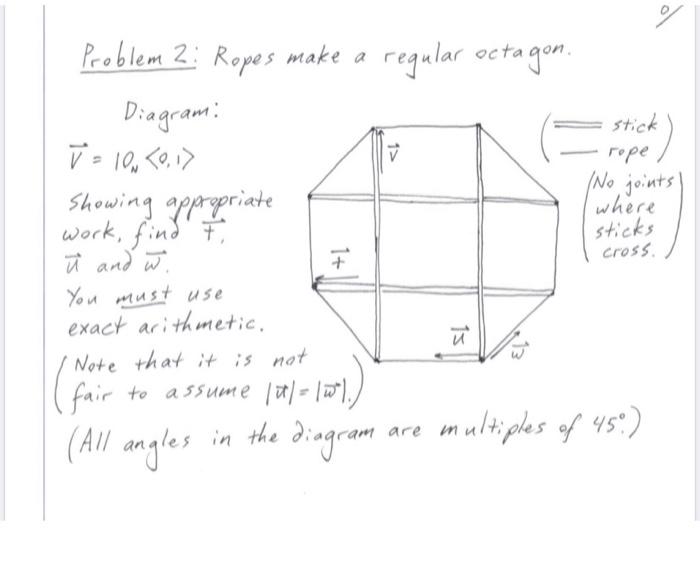 Problem 2: Ropes make a regular octagon.
Diagram:
v⃗ = 10N <0,1>
Showing appropriate
work, find t⃗,
u⃗ and w⃗.
You must use
exact arithmetic.
(Note that it is not
fair to assume |u⃗|=|w⃗|.)
(All angles in the diagram are multiples of 45°.)
v⃗
t⃗
u⃗
w⃗
( ═ stick
— rope )
(No joints
where
sticks
cross.)